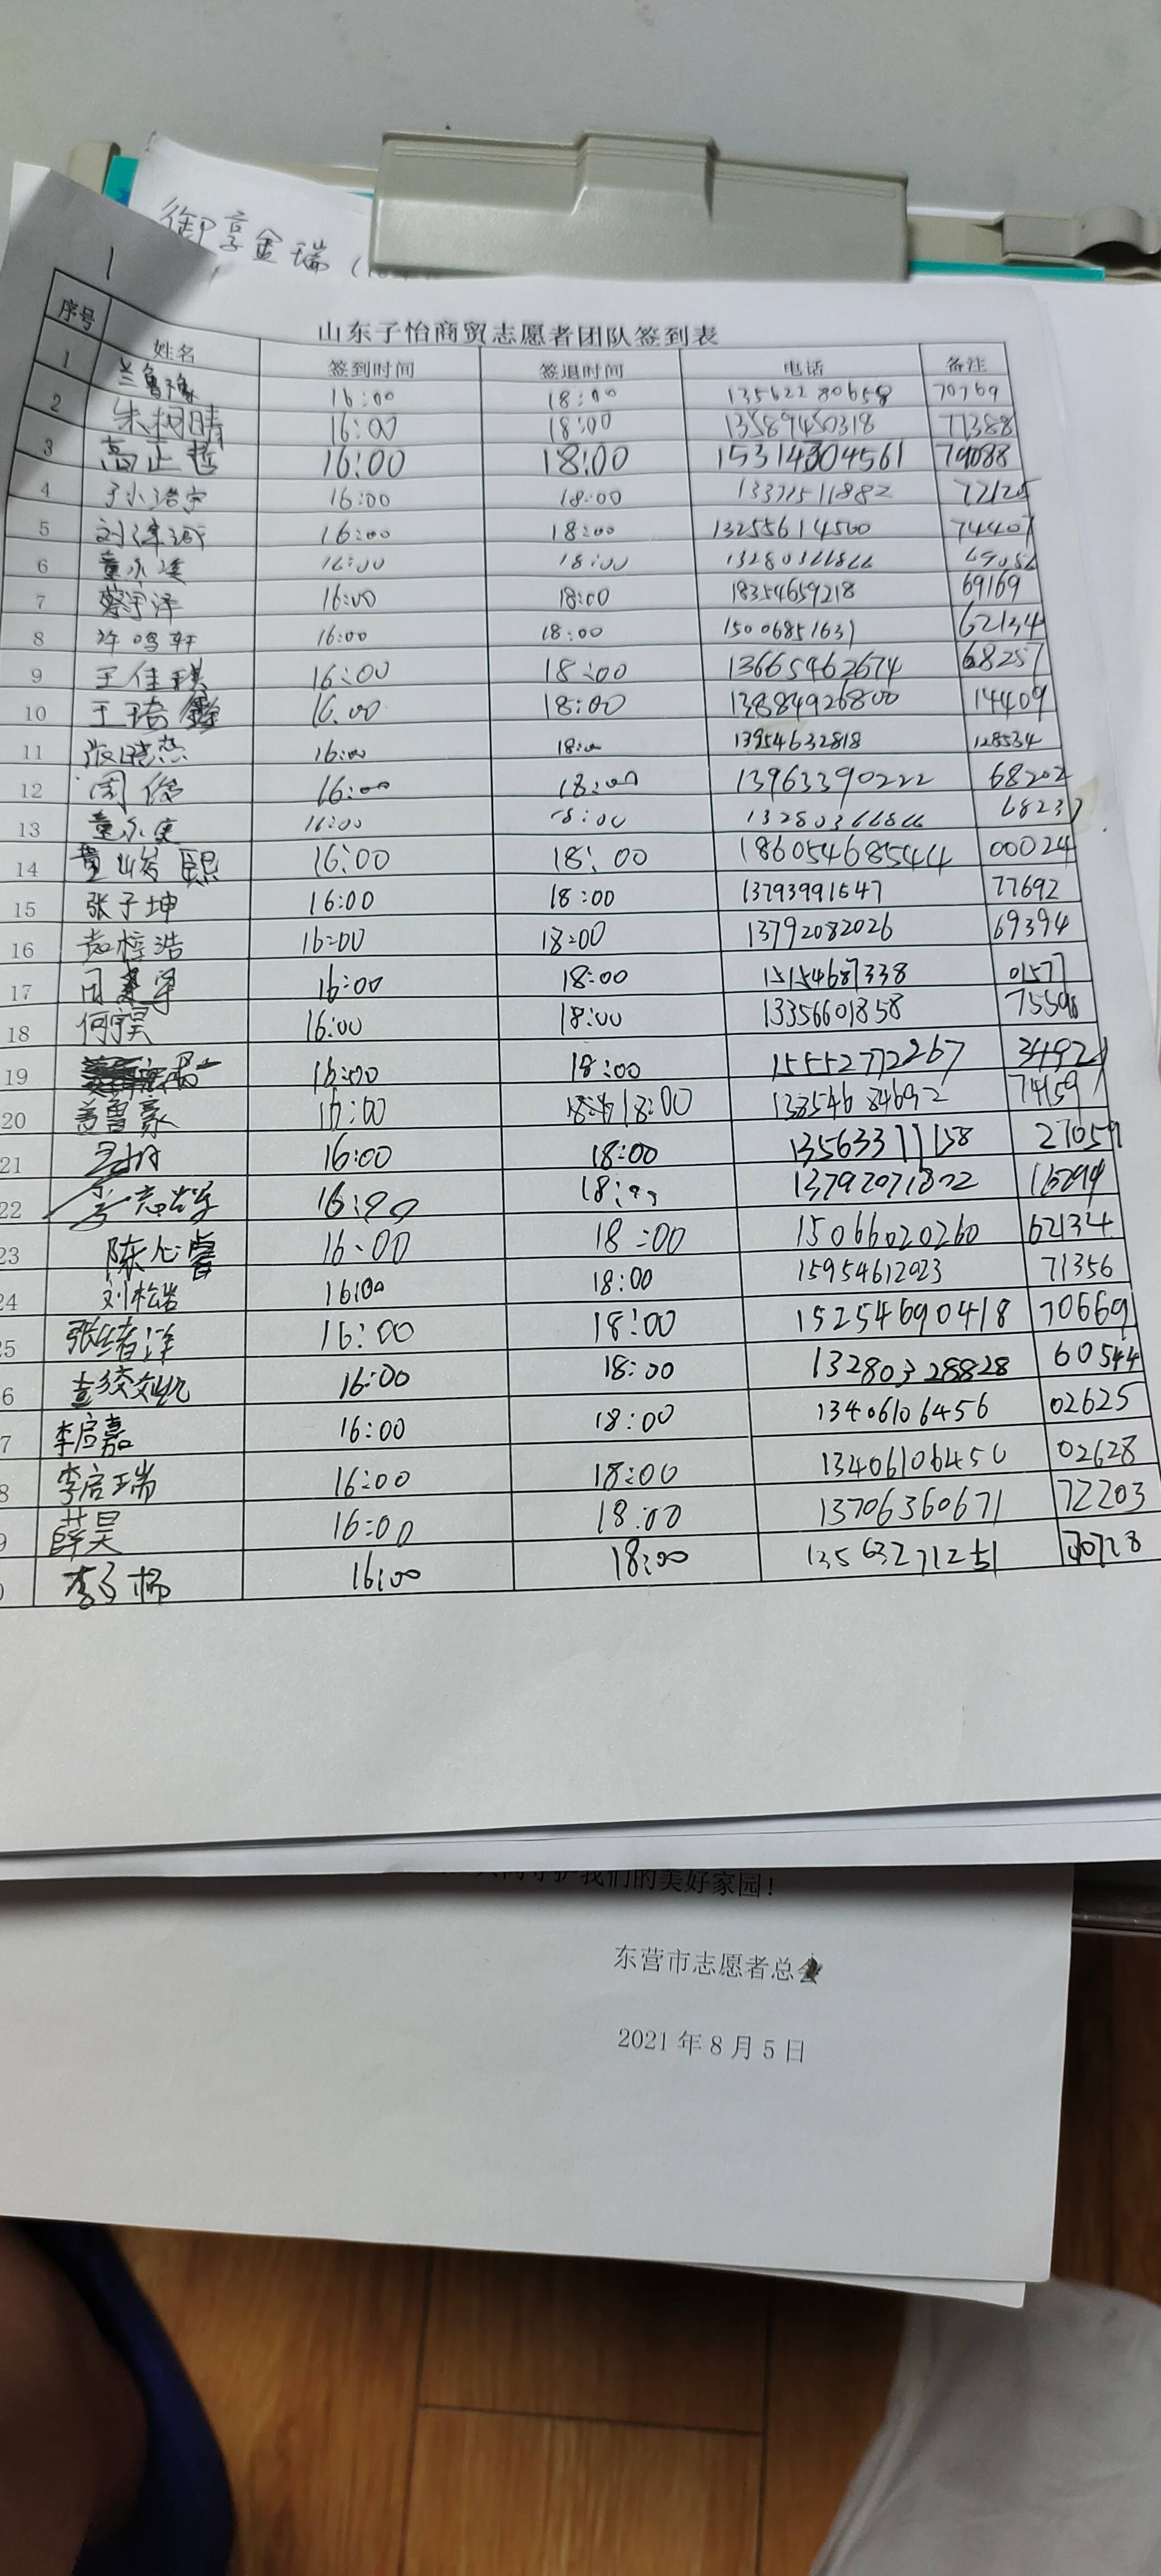 御享金瑞
山东子怡商贸志愿者团队签到表
序号 姓名 签到时间 签退时间 电话 备注
1 兰鲁豫 16:00 18:00 13562280658 70769
2 朱树晴 16:00 18:00 13589450318 77388
3 高正哲 16:00 18:00 15314304561 79088
4 于小浩宇 16:00 18:00 13371511882 72125
5 16:00 18:00 13255614500 74407
6 16:00 18:00 13280366866 69056
7 蔡宇泽 16:00 18:00 18354659218 69169
8 许鸣轩 16:00 18:00 15006851631 62134
9 王佳琪 16:00 18:00 13665462674 68257
10 王琦鑫 16:00 18:00 13884926800 14409
11 张晓杰 16:00 18:00 13954632818 128534
12 周俊 16:00 18:00 13963390222 68202
13 16:00 18:00 13280366866 68237
14 16:00 18:00 18605468544 00024
15 张子坤 16:00 18:00 13793991547 77692
16 赵梓浩 16:00 18:00 13792082026 69394
17 16:00 18:00 15154687338 01577
18 何宇昊 16:00 18:00 13356601858 75598
19 16:00 18:00 15552772267 34921
20 鲁豪 16:00 18:00 13854684692 74159
21 16:00 18:00 13563371158 27059
22 李志 16:00 18:00 13792071802 16294
23 陈心睿 16:00 18:00 15066020260 62134
24 刘松岩 16:00 18:00 15954612023 71356
5 张绪洋 16:00 18:00 15254690418 70669
6 16:00 18:00 13280328828 60544
7 李启嘉 16:00 18:00 13406106456 02625
8 李启瑞 16:00 18:00 13406106456 02628
9 薛昊 16:00 18:00 13706360671 72203
李子杨 16:00 18:00 13563271251 70728
我们的美好家园！
东营市志愿者总会
2021年8月5日